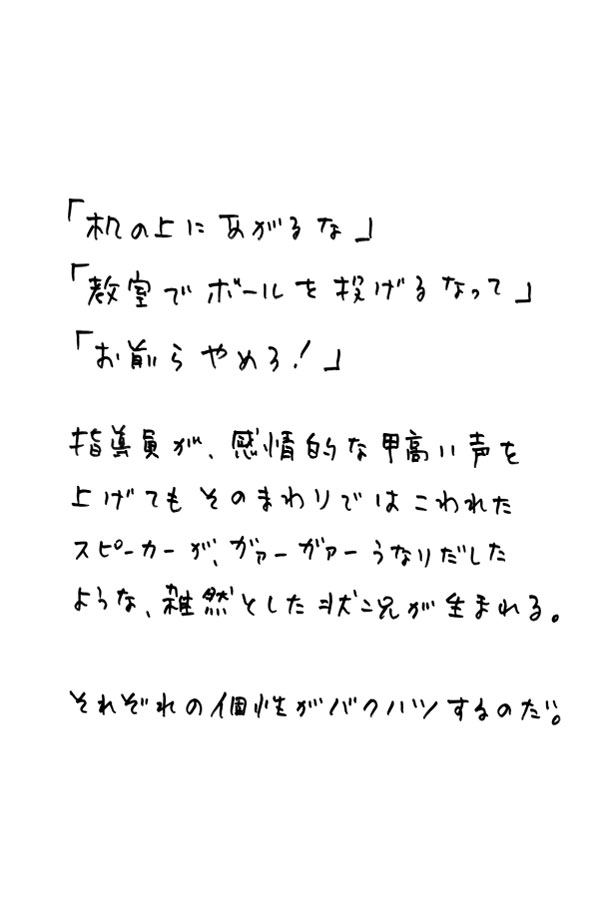 「机の上にあがるな」
「教室でボールを投げるなって」
「お前らやめろ！」
指導員が、感情的な甲高い声を
上げてもそのまわりではこわれた
スピーカーが、ガァーガァーうなりだした
ような、雑然とした状況が生まれる。
それぞれの個性がバクハツするのだ。